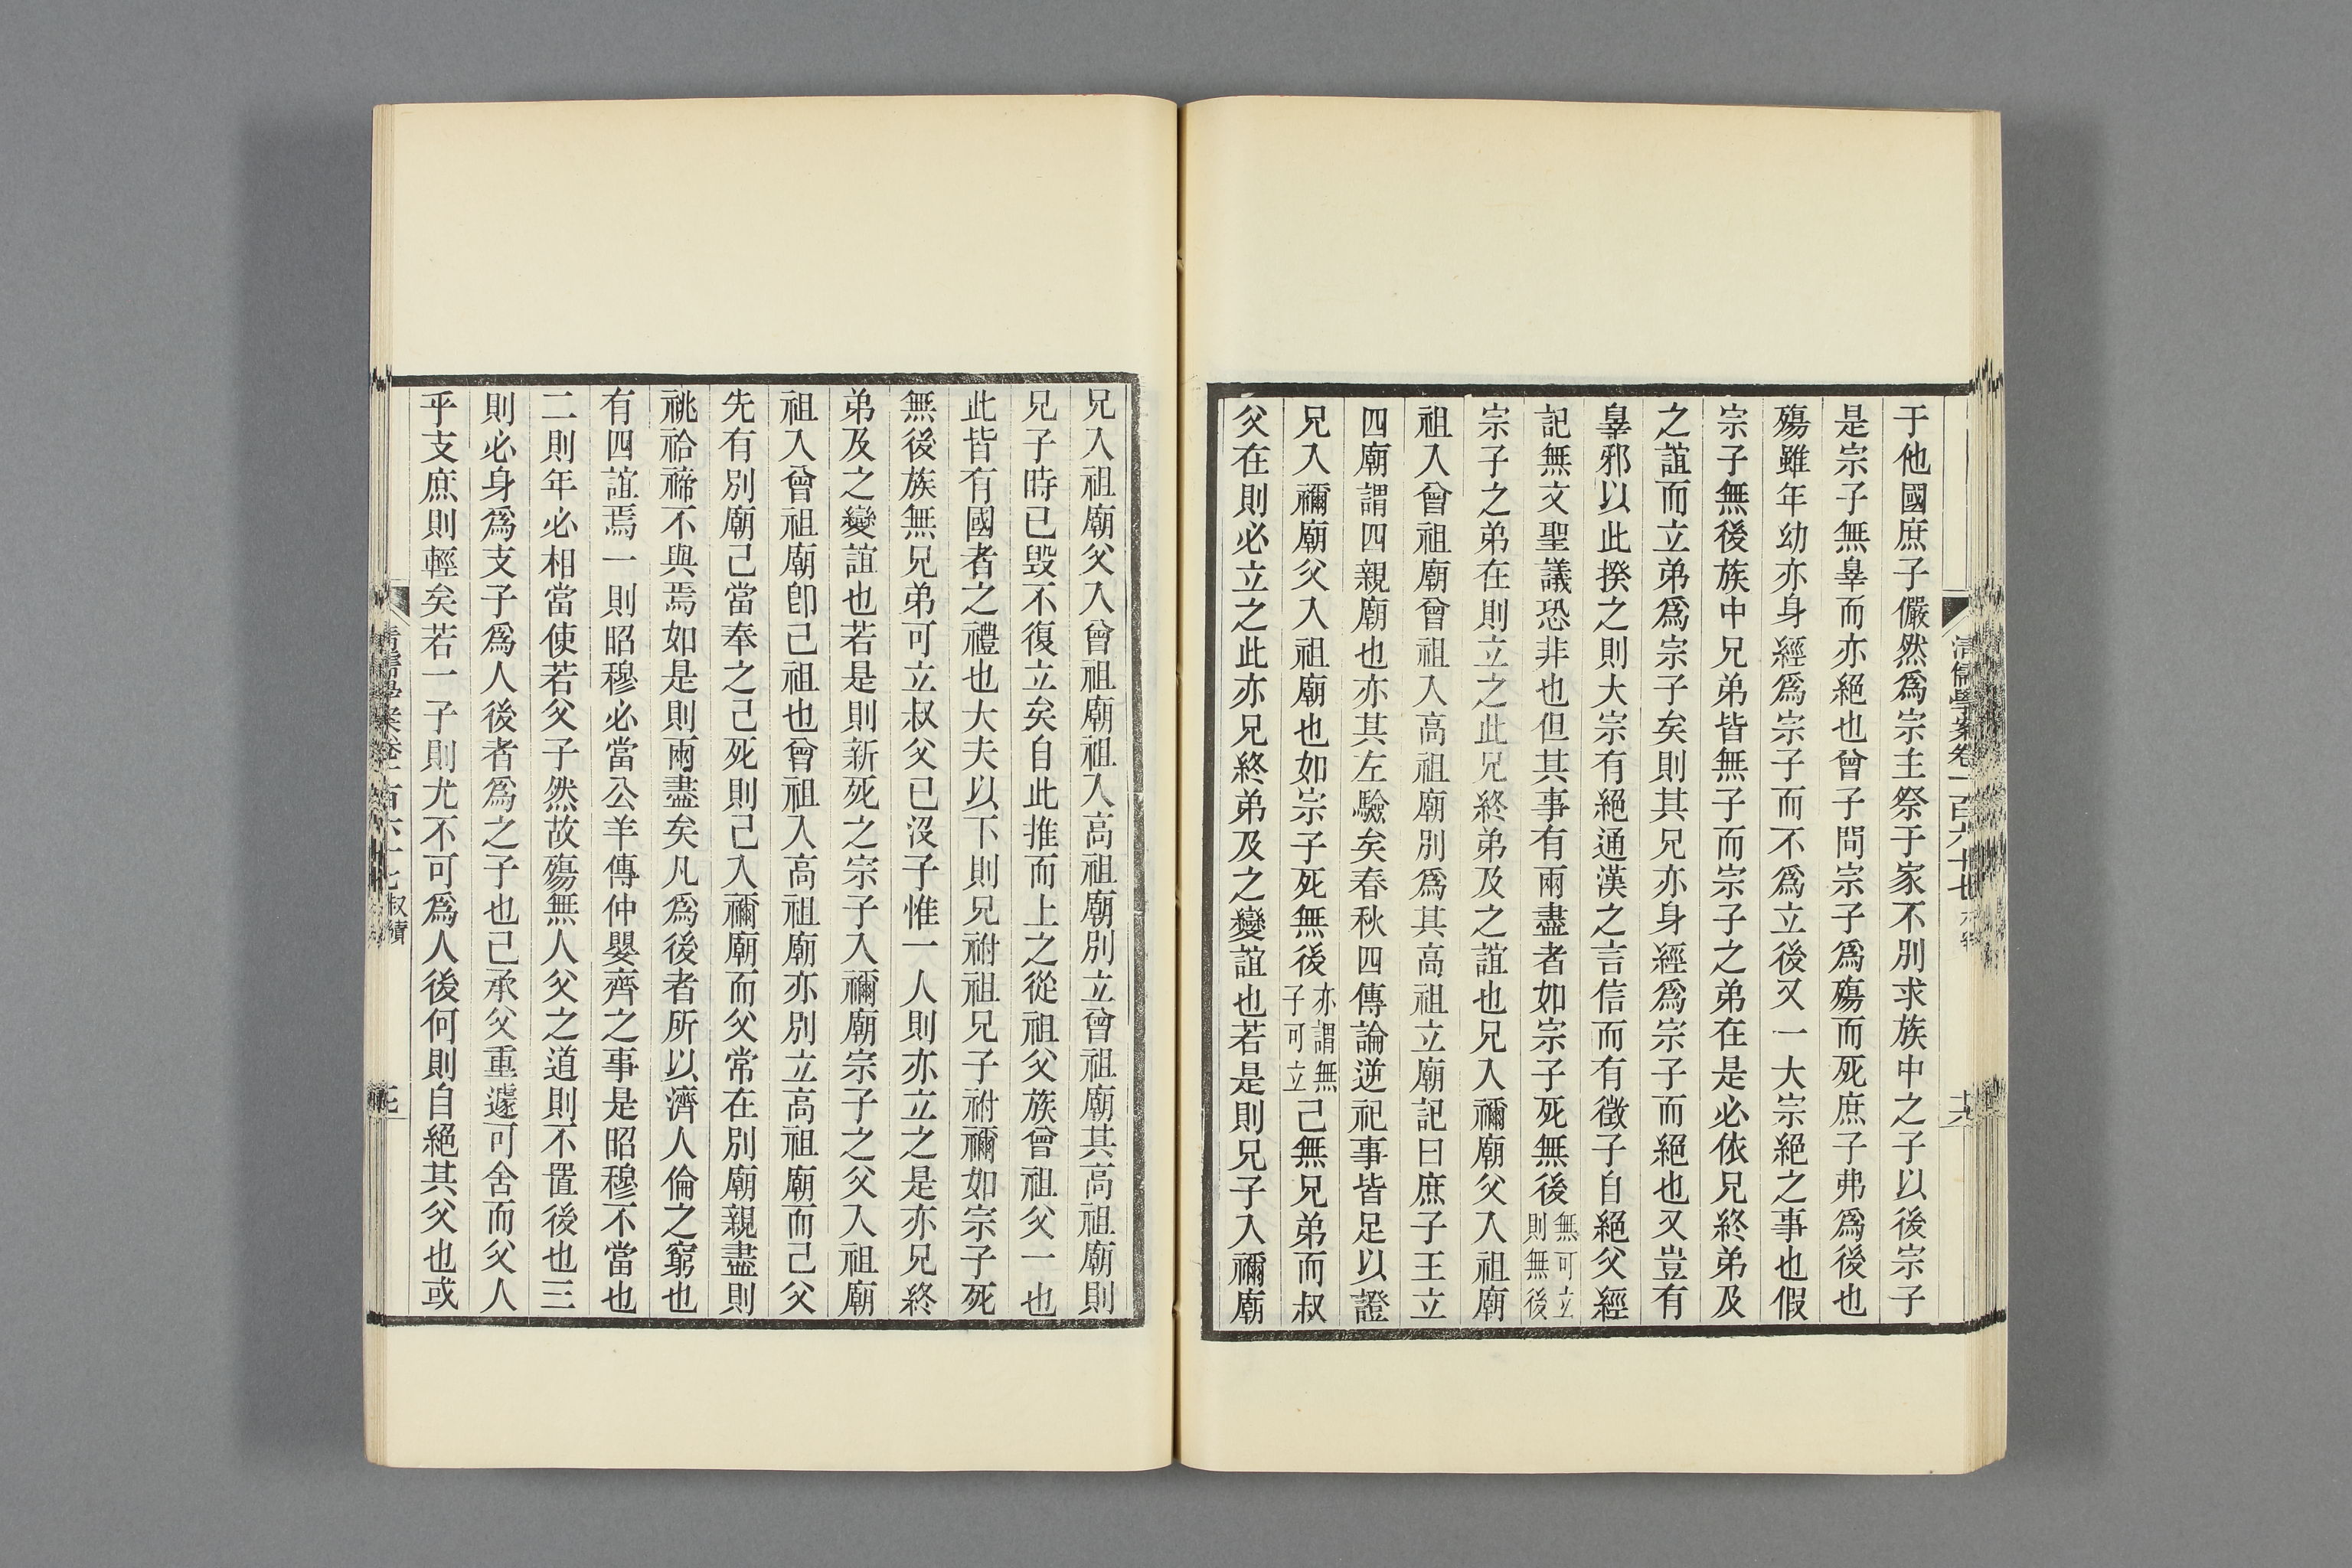 于他國庶子儼然爲宗主祭于家不別求族中之子以後宗子
是宗子無辠而亦絕也曾子問宗子爲殤而死庶子弗爲後也
殤雖年幼亦身經爲宗子而不爲立後又一大宗絕之事也假
宗子無後族中兄弟皆無子而宗子之弟在是必依兄終弟及
之誼而立弟爲宗子矣則其兄亦身經爲宗子而絕也又豈有
辠邪以此揆之則大宗有絕通漢之言信而有徵子自絕父經
記無文聖議恐非也但其事有兩盡者如宗子死無後無可立則無後
宗子之弟在則立之此兄終弟及之誼也兄入禰廟父入祖廟
祖入曾祖廟曾祖入高祖廟別爲其高祖立廟記曰庶子王立
四廟謂四親廟也亦其左驗矣春秋四傳論逆祀事皆足以證
兄入禰廟父入祖廟也如宗子死無後亦謂無子可立己無兄弟而叔
父在則必立之此亦兄終弟及之變誼也若是則兄子入禰廟
兄入祖廟父入曾祖廟祖入高祖廟別立曾祖廟其高祖廟則
兄子時已毀不復立矣自此推而上之從祖父族曾祖父一也
此皆有國者之禮也大夫以下則兄祔祖兄子祔禰如宗子死
無後族無兄弟可立叔父已沒子惟一人則亦立之是亦兄終
弟及之變誼也若是則新死之宗子入禰廟宗子之父入祖廟
祖入曾祖廟卽己祖也曾祖入高祖廟亦別立高祖廟而己父
先有別廟己當奉之己死則己入禰廟而父常在別廟親盡則
祧祫禘不與焉如是則兩盡矣凡爲後者所以濟人倫之窮也
有四誼焉一則昭穆必當公羊傳仲嬰齊之事是昭穆不當也
二則年必相當使若父子然故殤無人父之道則不置後也三
則必身爲支子爲人後者爲之子也己承父重遽可舍而父人
乎支庶則輕矣若一子則尤不可爲人後何則自絕其父也或
清儒學案卷一百六十七